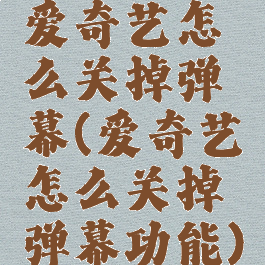 爱奇艺怎
么关掉弹
幕(爱奇艺
怎么关掉
弹幕功能)